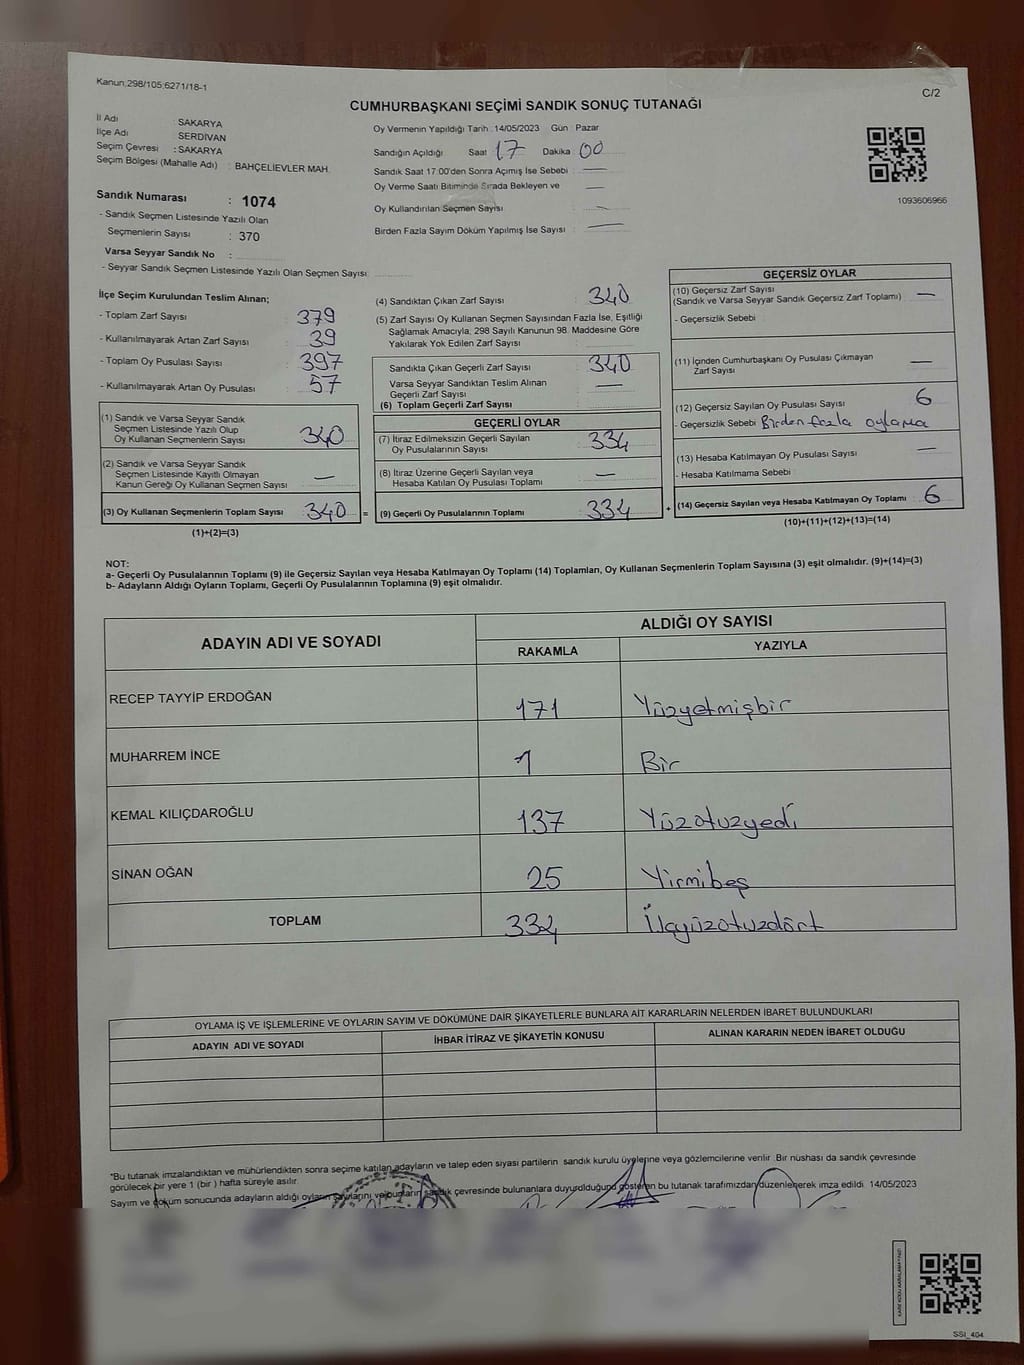 Kanun:298/105;6271/18-1
C/2
CUMHURBAŞKANI SEÇİMİ SANDIK SONUÇ TUTANAĞI
İl Adı : SAKARYA
İlçe Adı : SERDİVAN
Seçim Çevresi : SAKARYA
Seçim Bölgesi (Mahalle Adı) : BAHÇELİEVLER MAH.
Sandık Numarası : 1074
- Sandık Seçmen Listesinde Yazılı Olan
Seçmenlerin Sayısı : 370
Varsa Seyyar Sandık No :
- Seyyar Sandık Seçmen Listesinde Yazılı Olan Seçmen Sayısı:
Oy Vermenin Yapıldığı Tarih :14/05/2023 Gün Pazar
Sandığın Açıldığı Saat 17 Dakika 00
Sandık Saat 17.00'den Sonra Açımış İse Sebebi —
Oy Verme Saati Bitiminde Sırada Bekleyen ve —
Oy Kullandırılan Seçmen Sayısı —
Birden Fazla Sayım Döküm Yapılmış İse Sayısı —
1093606966
İlçe Seçim Kurulundan Teslim Alınan;
- Toplam Zarf Sayısı 379
- Kullanılmayarak Artan Zarf Sayısı 39
- Toplam Oy Pusulası Sayısı 397
- Kullanılmayarak Artan Oy Pusulası 57
(1) Sandık ve Varsa Seyyar Sandık
Seçmen Listesinde Yazılı Olup
Oy Kullanan Seçmenlerin Sayısı 340
(2) Sandık ve Varsa Seyyar Sandık
Seçmen Listesinde Kayıtlı Olmayan
Kanun Gereği Oy Kullanan Seçmen Sayısı —
(3) Oy Kullanan Seçmenlerin Toplam Sayısı 340 =
(1)+(2)=(3)
(4) Sandıktan Çıkan Zarf Sayısı : 340
(5) Zarf Sayısı Oy Kullanan Seçmen Sayısından Fazla İse, Eşitliği
Sağlamak Amacıyla, 298 Sayılı Kanunun 98. Maddesine Göre
Yakılarak Yok Edilen Zarf Sayısı :
Sandıkta Çıkan Geçerli Zarf Sayısı 340
Varsa Seyyar Sandıktan Teslim Alınan
Geçerli Zarf Sayısı —
(6) Toplam Geçerli Zarf Sayısı :
GEÇERLİ OYLAR
(7) İtiraz Edilmeksizin Geçerli Sayılan
Oy Pusulalarının Sayısı : 334
(8) İtiraz Üzerine Geçerli Sayılan veya
Hesaba Katılan Oy Pusulası Toplamı : —
(9) Geçerli Oy Pusulalarının Toplamı : 334 +
GEÇERSİZ OYLAR
(10) Geçersiz Zarf Sayısı
(Sandık ve Varsa Seyyar Sandık Geçersiz Zarf Toplamı) : —
- Geçersizlik Sebebi :
(11) İçinden Cumhurbaşkanı Oy Pusulası Çıkmayan
Zarf Sayısı : —
(12) Geçersiz Sayılan Oy Pusulası Sayısı : 6
- Geçersizlik Sebebi Birden fazla oylama
(13) Hesaba Katılmayan Oy Pusulası Sayısı : —
- Hesaba Katılmama Sebebi :
(14) Geçersiz Sayılan veya Hesaba Katılmayan Oy Toplamı : 6
(10)+(11)+(12)+(13)=(14)
NOT:
a- Geçerli Oy Pusulalarının Toplamı (9) ile Geçersiz Sayılan veya Hesaba Katılmayan Oy Toplamı (14) Toplamları, Oy Kullanan Seçmenlerin Toplam Sayısına (3) eşit olmalıdır. (9)+(14)=(3)
b- Adayların Aldığı Oyların Toplamı, Geçerli Oy Pusulalarının Toplamına (9) eşit olmalıdır.
ADAYIN ADI VE SOYADI
ALDIĞI OY SAYISI
RAKAMLA YAZIYLA
RECEP TAYYİP ERDOĞAN 171 Yüzyetmişbir
MUHARREM İNCE 1 Bir
KEMAL KILIÇDAROĞLU 137 Yüzotuzyedi
SİNAN OĞAN 25 Yirmibeş
TOPLAM 334 Üçyüzotuzdört
OYLAMA İŞ VE İŞLEMLERİNE VE OYLARIN SAYIM VE DÖKÜMÜNE DAİR ŞİKAYETLERLE BUNLARA AİT KARARLARIN NELERDEN İBARET BULUNDUKLARI
ADAYIN ADI VE SOYADI İHBAR İTİRAZ VE ŞİKAYETİN KONUSU ALINAN KARARIN NEDEN İBARET OLDUĞU
*Bu tutanak imzalandıktan ve mühürlendikten sonra seçime katılan adayların ve talep eden siyası partilerin sandık kurulu üyelerine veya gözlemcilerine verilir. Bir nüshası da sandık çevresinde
görülecek bir yere 1 (bir ) hafta süreyle asılır.
Sayım ve döküm sonucunda adayların aldığı oyların sayılarını ve bunların sandık çevresinde bulunanlara duyurulduğunu gösteren bu tutanak tarafımızdan düzenlenerek imza edildi. 14/05/2023
SSI_404